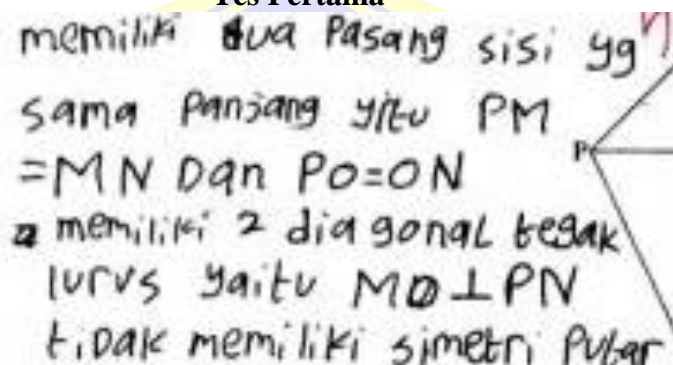 Tes Pertama
memiliki dua Pasang sisi yg
sama Panjang yitu PM
P
=MN Dan PO=ON
memiliki 2 diagonal tegak
lurus yaitu MO⊥PN
tiDak memiliki simetri Putar